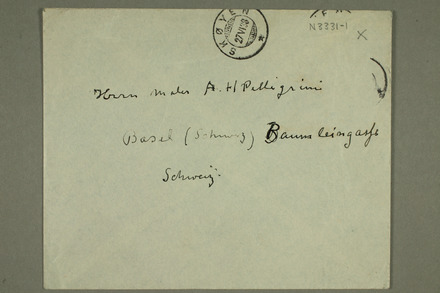 SKØYEN
27 VI 28
N3331-1
X
Herrn Maler A. H Pellegrini
Basel (Schweiz) Bäumleingasse
Schweiz.